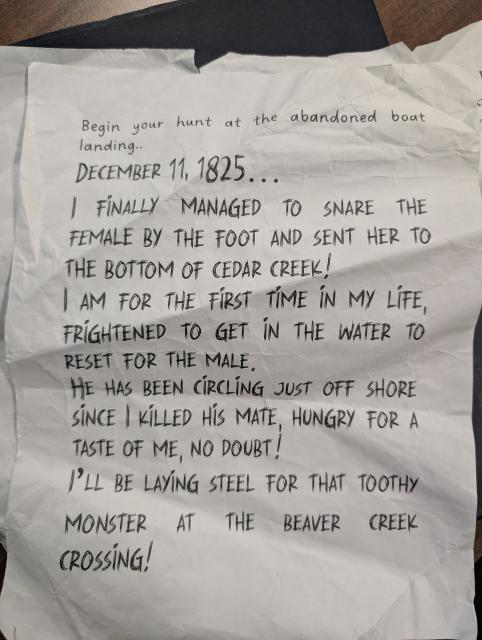 Begin your hunt at the abandoned boat
landing..
DECEMBER 11, 1825...
I FINALLY MANAGED TO SNARE THE
FEMALE BY THE FOOT AND SENT HER TO
THE BOTTOM OF CEDAR CREEK!
I AM FOR THE FIRST TIME IN MY LIFE,
FRIGHTENED TO GET IN THE WATER TO
RESET FOR THE MALE.
HE HAS BEEN CIRCLING JUST OFF SHORE
SINCE I KILLED HIS MATE, HUNGRY FOR A
TASTE OF ME, NO DOUBT!
I'LL BE LAYING STEEL FOR THAT TOOTHY
MONSTER AT THE BEAVER CREEK
CROSSING!